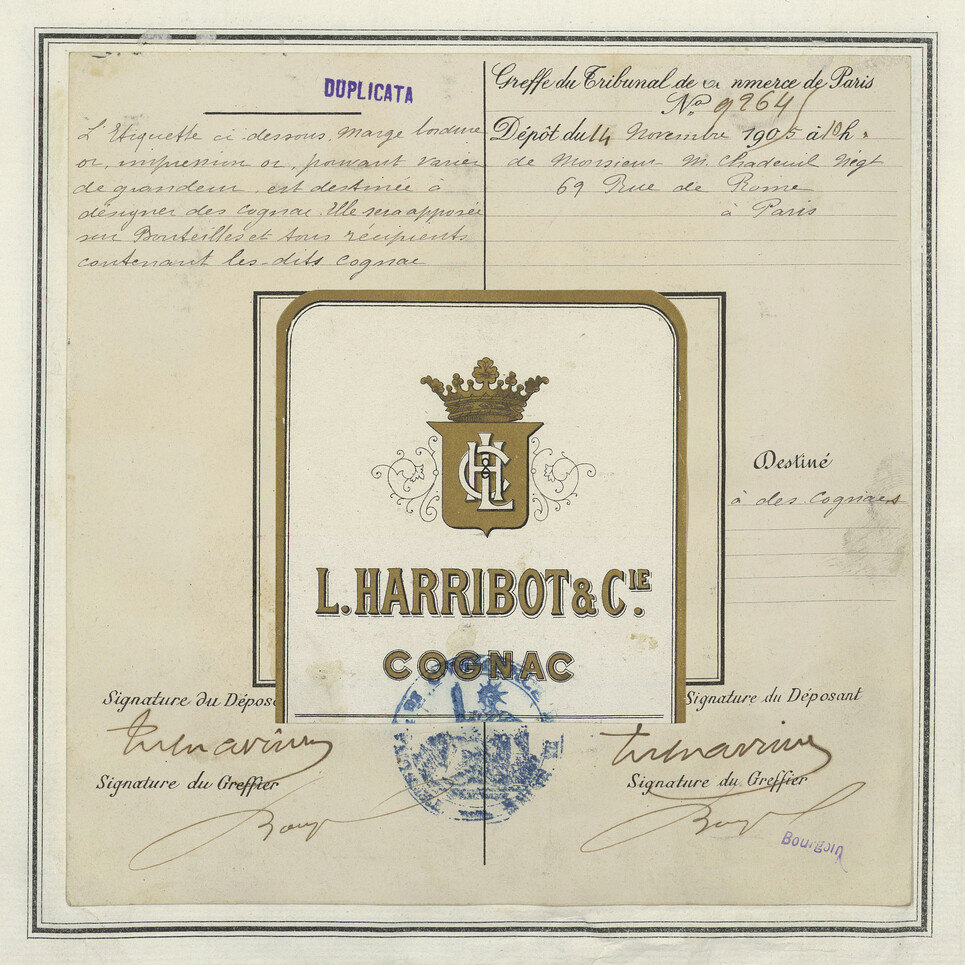 DUPLICATA
L'Etiquette ci-dessous. Marge bordure
or, impression or, pouvant varier
de grandeur, est destinée à
désigner des Cognac. Elle sera apposée
sur Bouteilles et tous récipients
contenant les-dits Cognac
Greffe du Tribunal de Commerce de Paris
No 9964
Dépôt du 14 Novembre 1905 à 10h.
de Monsieur M. Chadeuil Négt
69 Rue de Rome
à Paris
Destiné
à des Cognacs
HCL
L. HARRIBOT & CIE.
COGNAC
Signature du Dépos
Signature du Déposant
Signature du Greffier
Signature du Greffier
Bourgoin